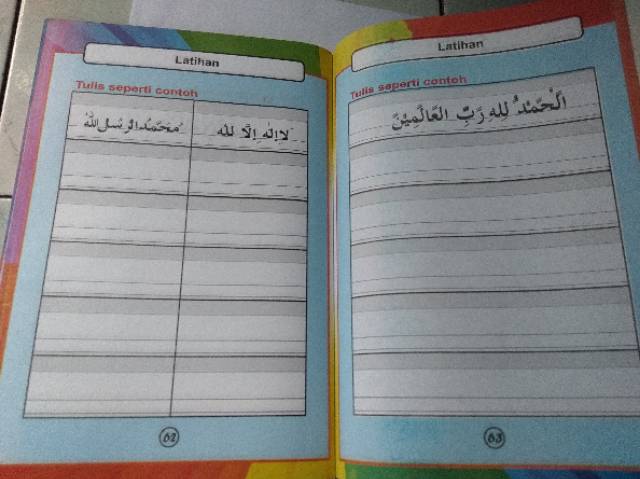 Latihan
Tulis seperti contoh
لااله الا لله
محمدالرسل الله
62
Latihan
Tulis seperti contoh
اَلْحَمْدُ لِلهِ رَبِّ العَالَمِيْنَ
63